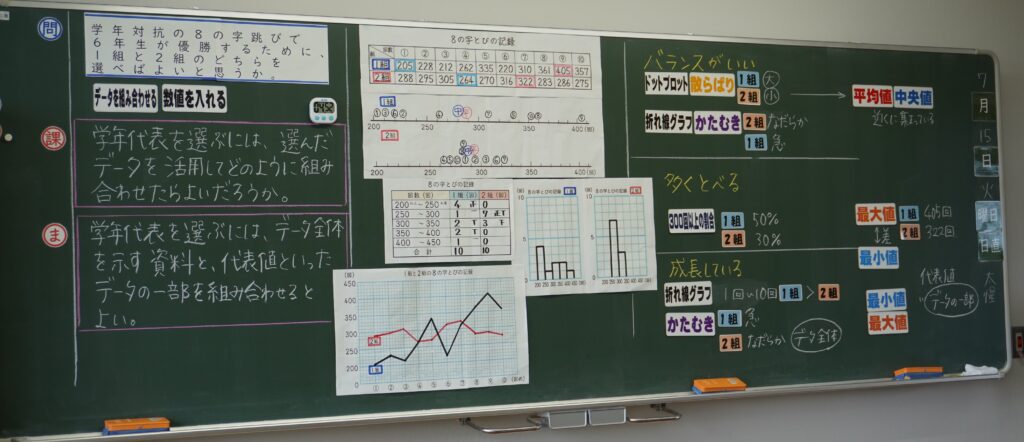 問
学年対抗の8の字跳びで
6年生が優勝するために、
1組と2組のどちらを
選べばよいと思うか。
データを組み合わせる
数値を入れる
課
学年代表を選ぶには、選んだ
データを活用してどのように組み
合わせたらよいだろうか。
ま
学年代表を選ぶには、データ全体
を示す資料と、代表値といった
データの一部を組み合わせると
よい。
8の字とびの記録
回数 ① ② ③ ④ ⑤ ⑥ ⑦ ⑧ ⑨ ⑩
1組 205 228 212 262 335 220 310 361 405 357
2組 288 295 305 264 270 316 322 283 286 275
1組
200 250 300 350 400 450(回)
2組
200 250 300 350 400 450(回)
8の字とびの記録
回数(回) 1組(回) 2組(回)
200以上~250未満 4 0
250 ~ 300 1 7
300 ~ 350 2 3
350 ~ 400 2 0
400 ~ 450 1 0
合計 10 10
8の字とびの記録 1組
(回)
10
5
0
200 250 300 350 400 450(回)
8の字とびの記録 2組
(回)
10
5
0
200 250 300 350 400 450(回)
1組と2組の8の字とびの記録
(回)
450
400
350
300
250
200
2組
1組
① ② ③ ④ ⑤ ⑥ ⑦ ⑧ ⑨ ⑩
バランスがいい
ドットプロット 散らばり 1組 大
2組 小
平均値 中央値
近くに集まっている
折れ線グラフ かたむき 2組 なだらか
1組 急
多くとべる
300回以上の割合 1組 50%
2組 30%
最大値 1組 405回
差 2組 322回
最小値
成長している
折れ線グラフ 1回い10回 1組 > 2組
かたむき 1組 急
2組 なだらか データ全体
最小値
最大値
代表値
データの一部
7
月
15
日
火
曜日
日直